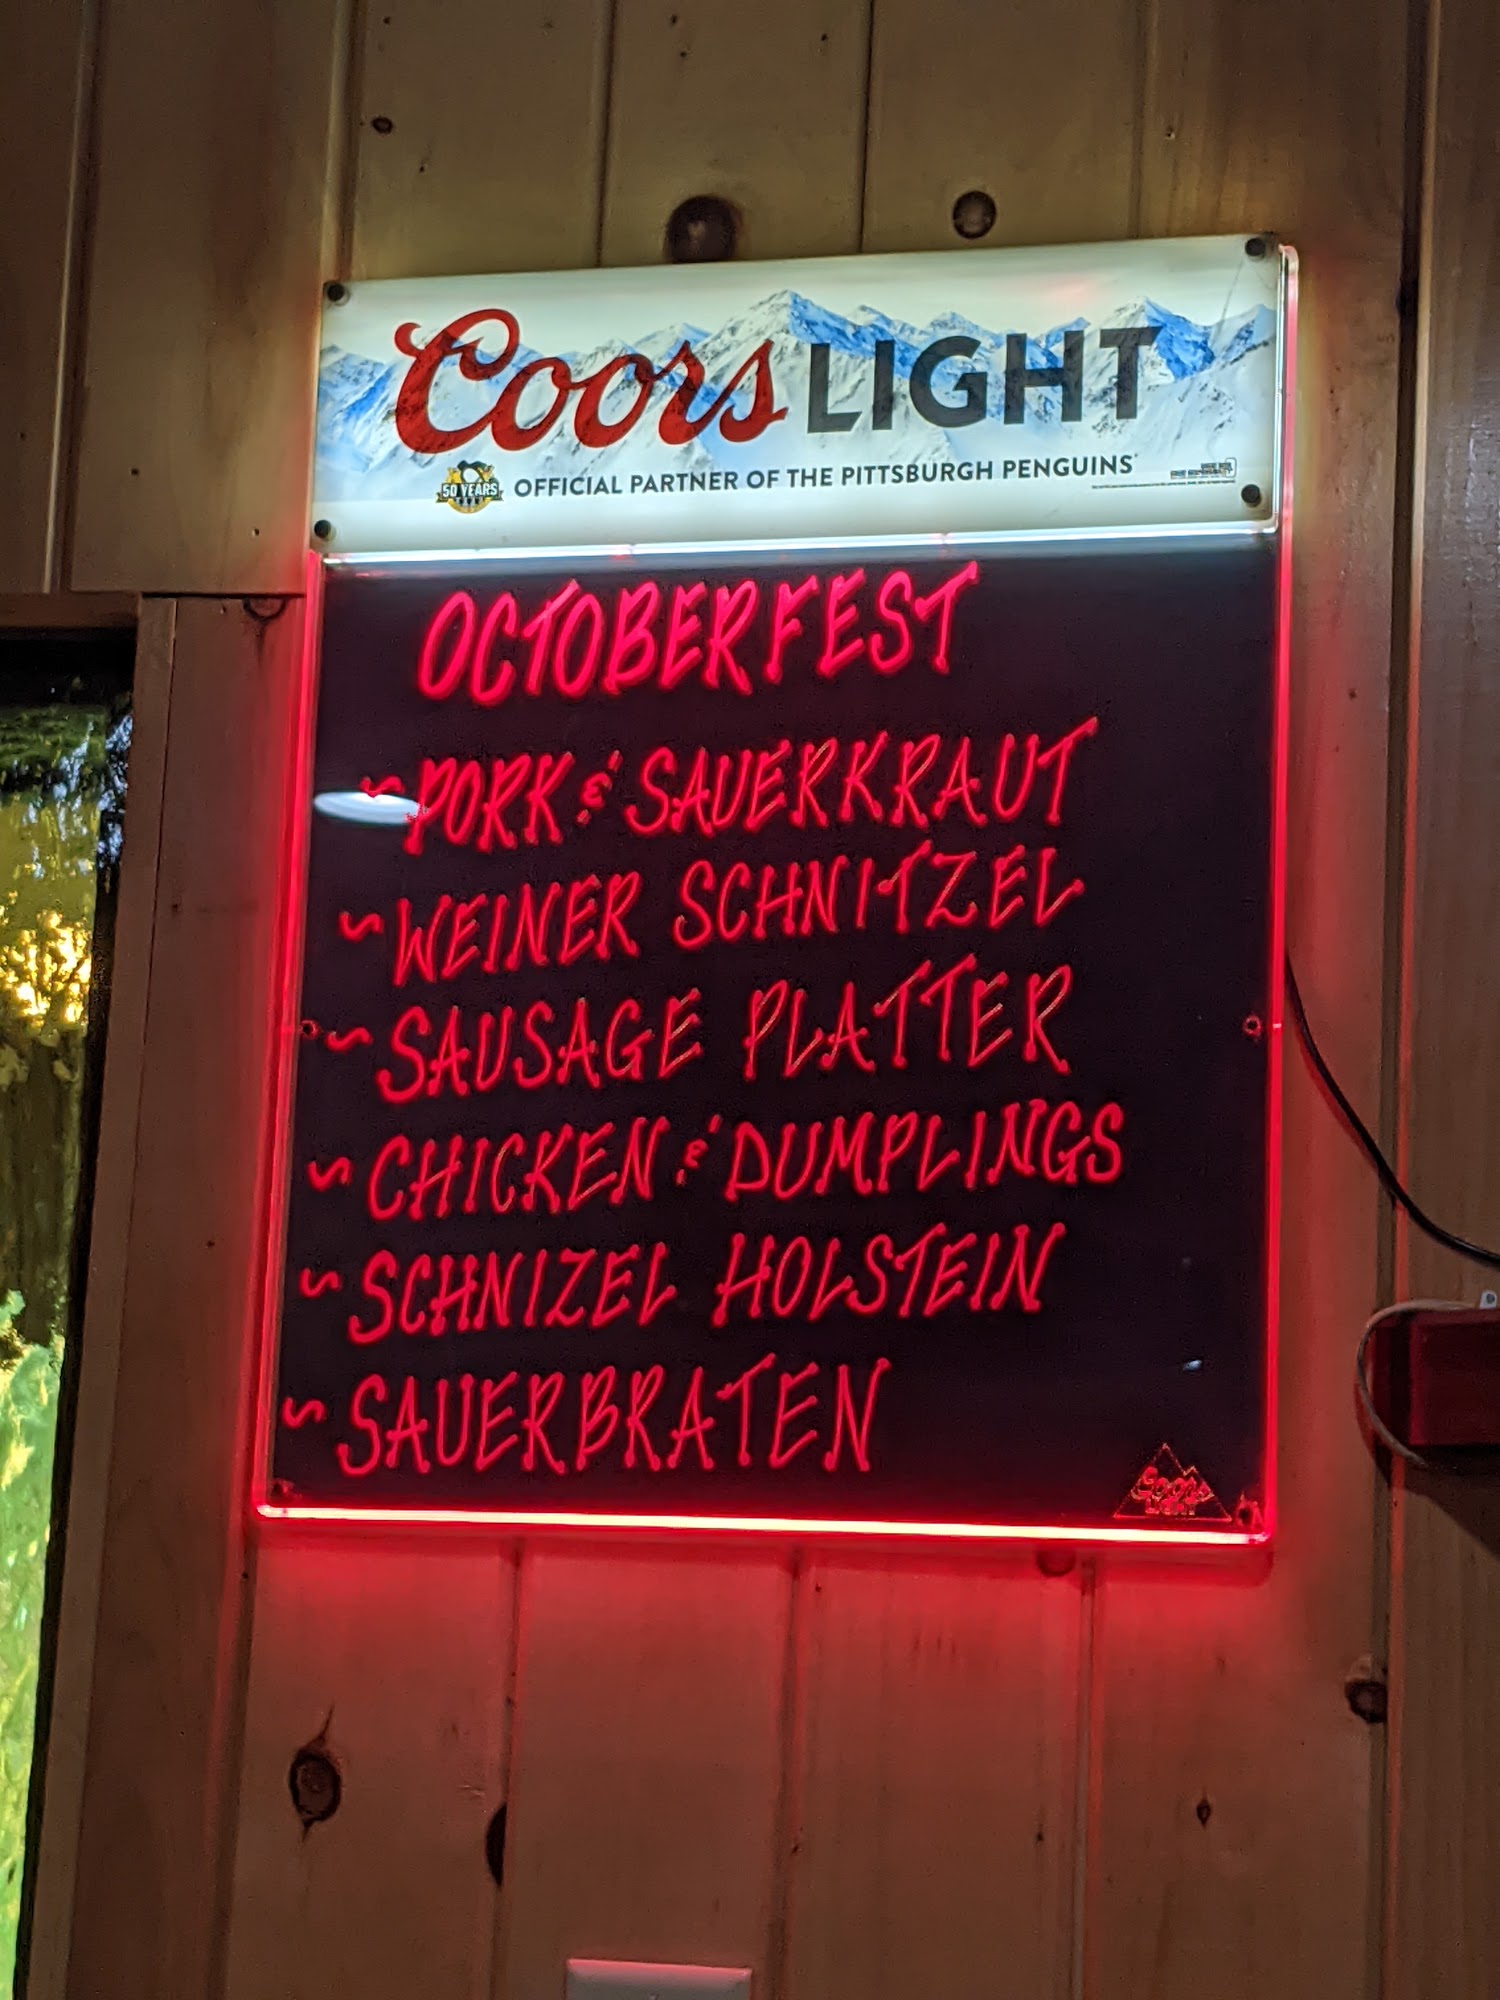 Coors LIGHT
50 YEARS OFFICIAL PARTNER OF THE PITTSBURGH PENGUINS
OCTOBERFEST
~ PORK & SAUERKRAUT
~ WEINER SCHNITZEL
~ SAUSAGE PLATTER
~ CHICKEN & DUMPLINGS
~ SCHNIZEL HOLSTEIN
~ SAUERBRATEN
Coors